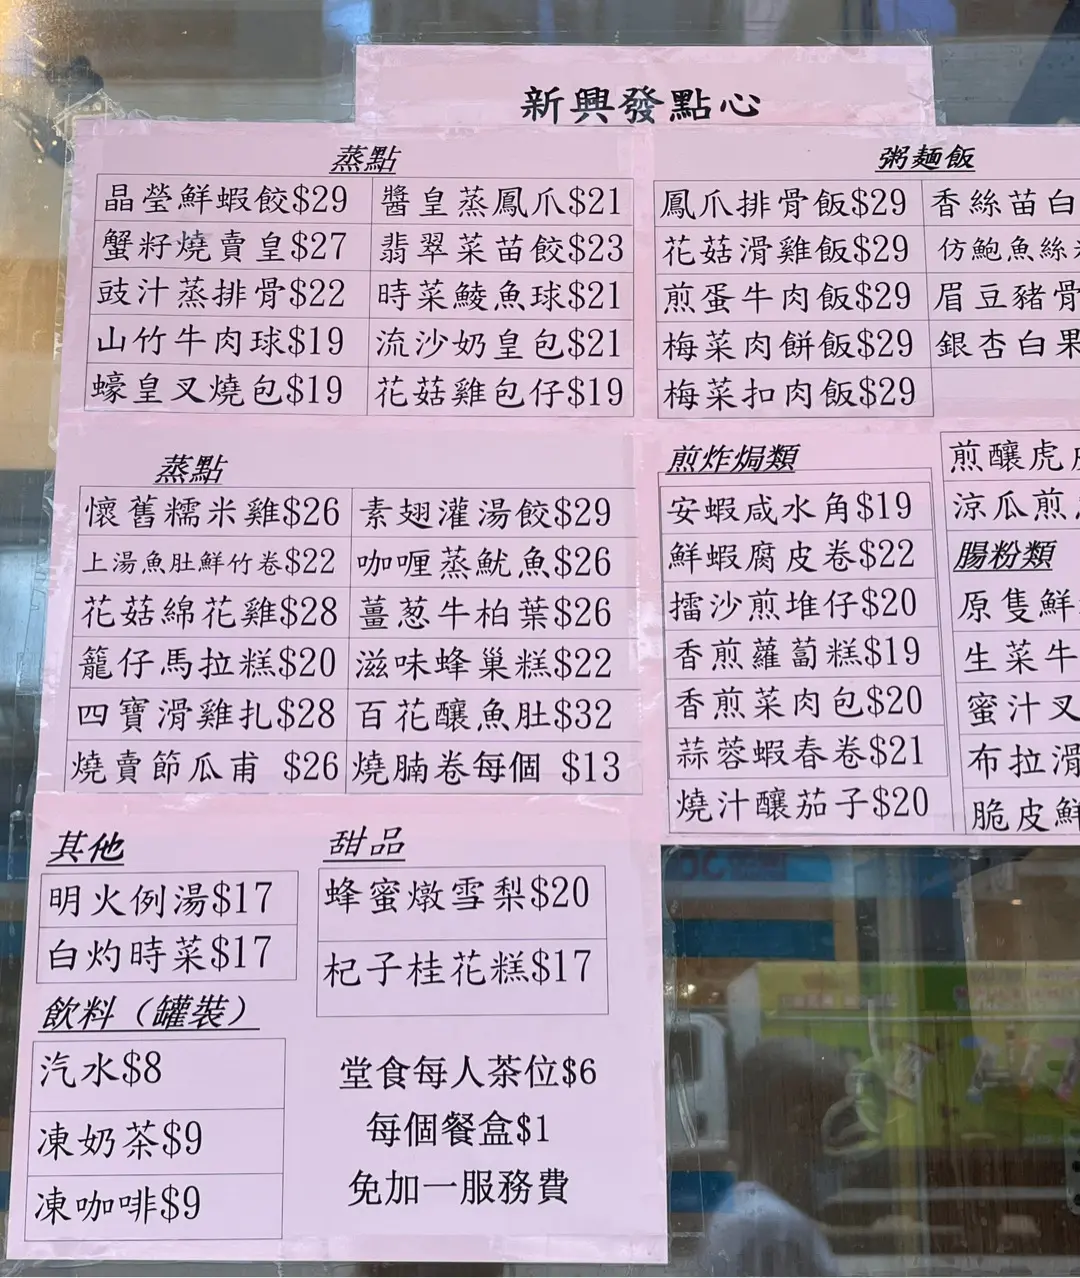 新興發點心
蒸點
晶瑩鮮蝦餃$29 醬皇蒸鳳爪$21
蟹籽燒賣皇$27 翡翠菜苗餃$23
豉汁蒸排骨$22 時菜鯪魚球$21
山竹牛肉球$19 流沙奶皇包$21
蠔皇叉燒包$19 花菇雞包仔$19
粥麵飯
鳳爪排骨飯$29 香絲苗白
花菇滑雞飯$29 仿鮑魚絲
煎蛋牛肉飯$29 眉豆豬骨
梅菜肉餅飯$29 銀杏白果
梅菜扣肉飯$29
蒸點
懷舊糯米雞$26 素翅灌湯餃$29
上湯魚肚鮮竹卷$22 咖喱蒸魷魚$26
花菇綿花雞$28 薑葱牛柏葉$26
籠仔馬拉糕$20 滋味蜂巢糕$22
四寶滑雞扎$28 百花釀魚肚$32
燒賣節瓜甫 $26 燒腩卷每個 $13
煎炸焗類
安蝦咸水角$19
鮮蝦腐皮卷$22
擂沙煎堆仔$20
香煎蘿蔔糕$19
香煎菜肉包$20
蒜蓉蝦春卷$21
燒汁釀茄子$20
煎釀虎
涼瓜煎
腸粉類
原隻鮮
生菜牛
蜜汁叉
布拉滑
脆皮鮮
其他
明火例湯$17
白灼時菜$17
飲料（罐裝）
汽水$8
凍奶茶$9
凍咖啡$9
甜品
蜂蜜燉雪梨$20
杞子桂花糕$17
堂食每人茶位$6
每個餐盒$1
免加一服務費